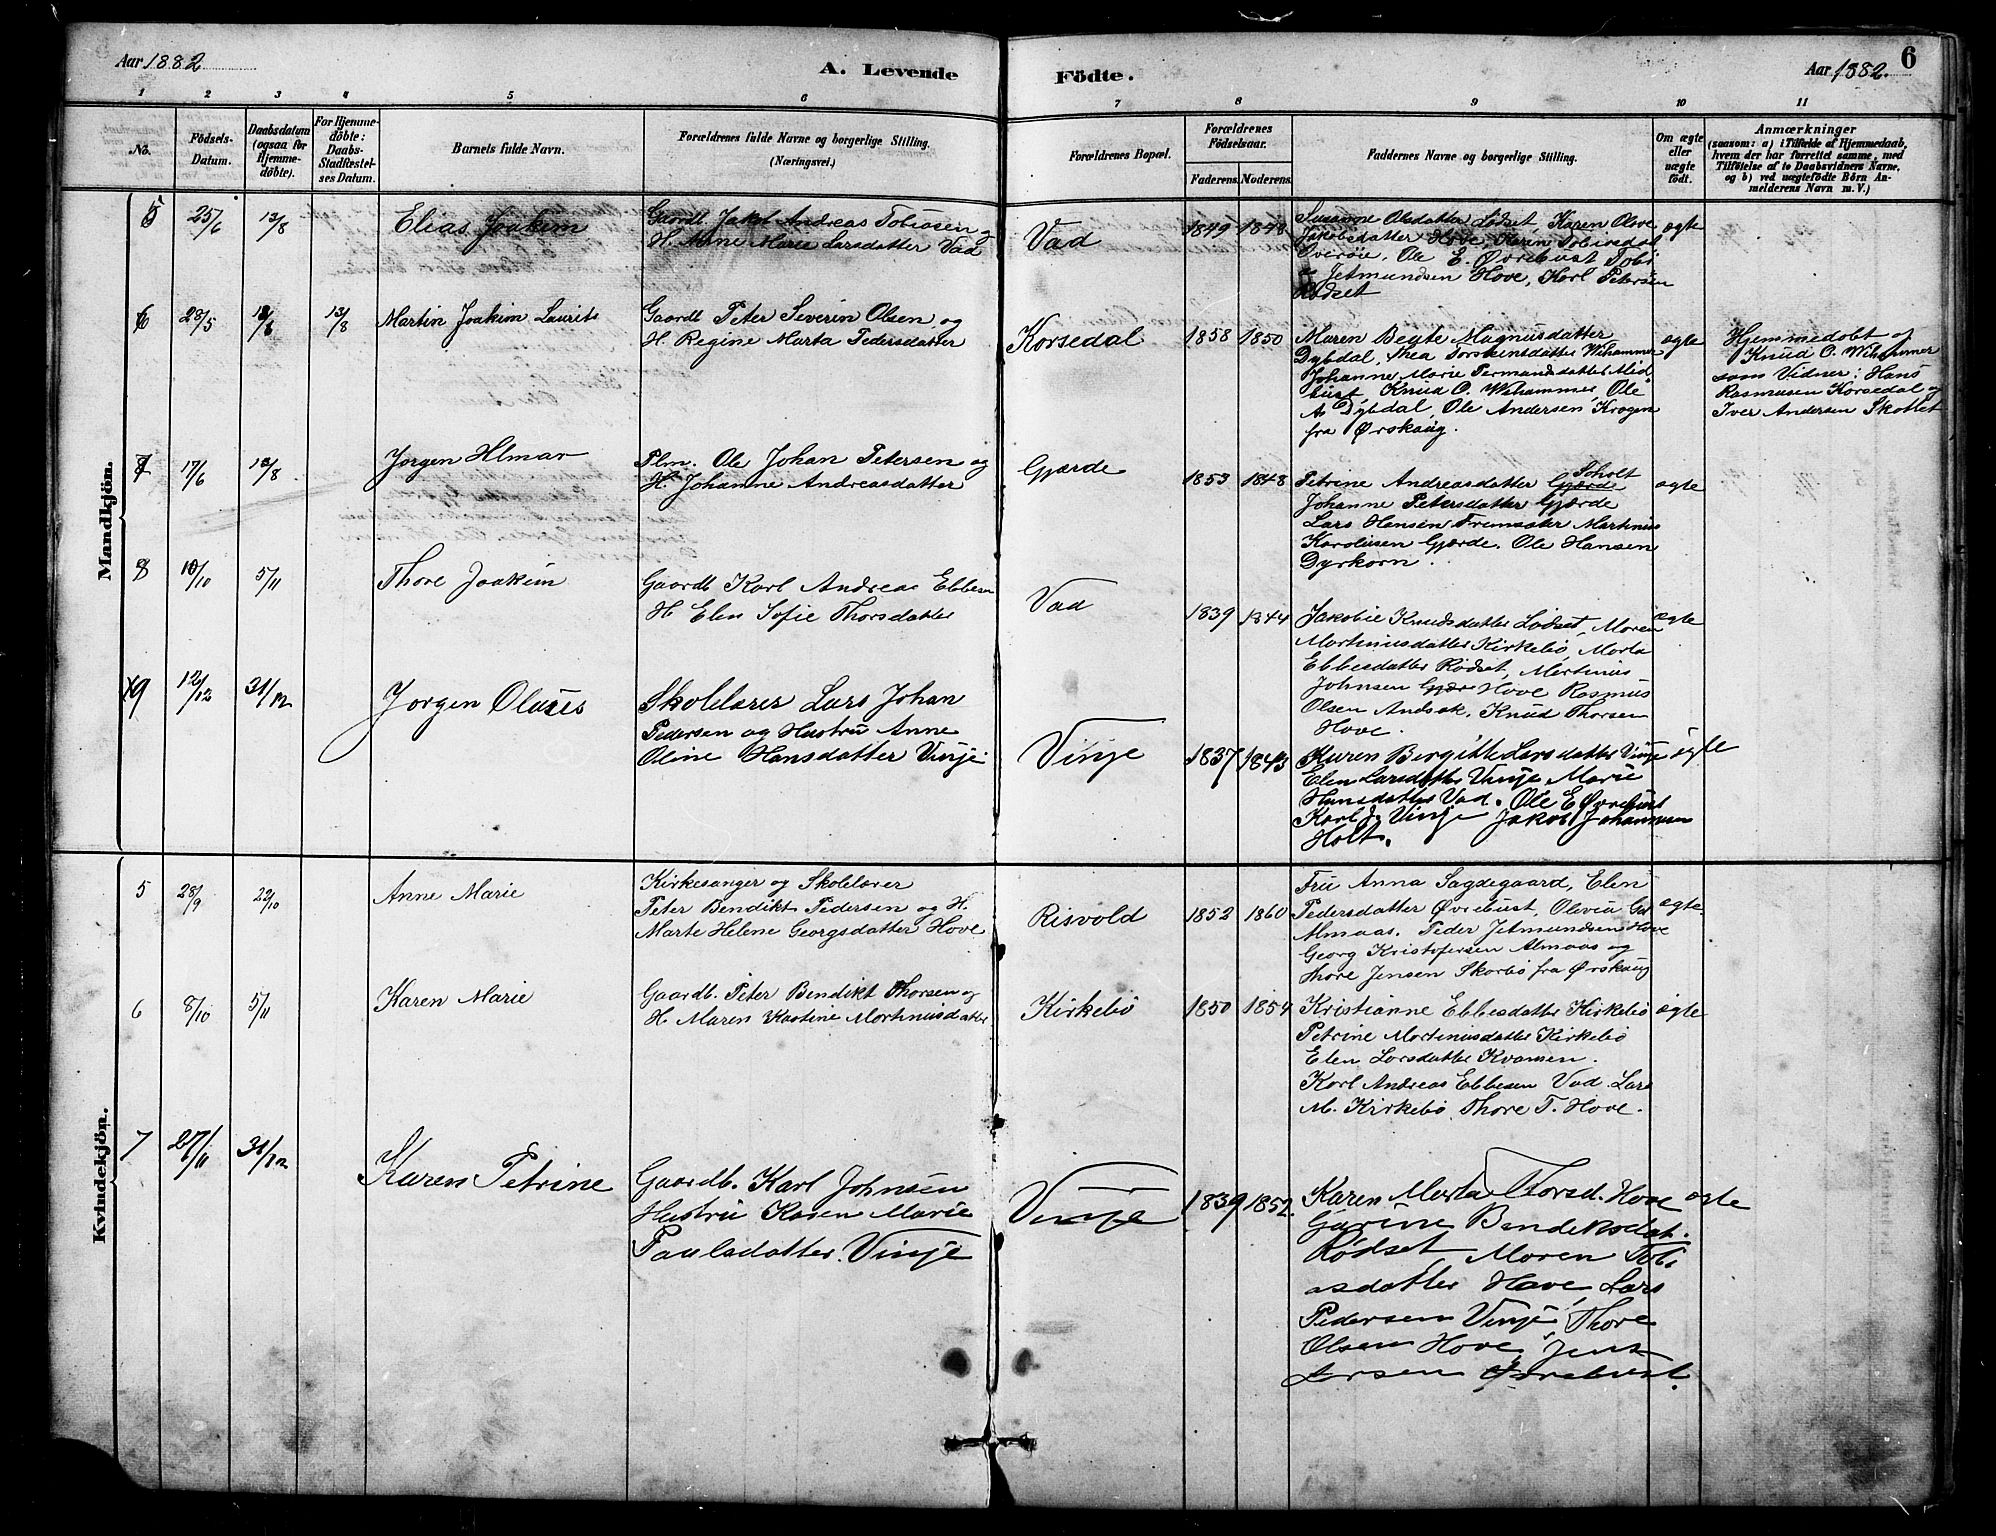 Aar 1882
A. Levende Födte.
Aar 1882.
6
1 2 3 4 5 6 7 8 9 10 11
No.
Födsels-
Datum.
Daabsdatum
(ogsaa for
Hjemme-
döbte).
For Hjemme-
döbte:
Daabs-
Stadfæstel-
ses Datum.
Barnets fulde Navn.
Forældrenes fulde Navne og borgerlige Stilling.
(Næringsvei.)
Forældrenes Bopæl.
Forældrenes
Födselsaar.
Faderens. Moderens.
Faddernes Navne og borgerlige Stilling.
Om ægte
eller
uægte
födt.
Anmærkninger
(saasom: a) i Tilfælde af Hjemmedaab,
hvem der har forrettet samme, med
Tilföielse af to Daabsvidners Navne,
og b) ved uægtefödte Börn An-
melderens Navn m. V.)
Mandkjön.
5 25/6 13/8
Elias Joakim
Gaardb. Jakob Andreas Tobiasen og
H. Anne Marie Larsdatter Vad
Vad
1849 1848
Susanne Olsdatter Lødset, Karen Olave
Jakobsdatter Hove, Karen Tobiasdat
Overøie, Ole E. Øvrebust Tobi
as Jetmundsen Hove, Karl Petersen
Rødset
ægte
6 28/5 13/8 13/8
Martin Joakim Laurits
Gaardb. Peter Severin Olsen og
H. Regine Marta Pedersdatter
Korsedal
1858 1850
Maren Begte Magnusdatter
Dybdal, Thea Torstensdatter Wihammer
Johanne Marie Permandsdatter Mid
bust, Knud O. Wihammer, Ole
A. Dybdal, Ole Andersen Krogen
fra Ørskaug.
ægte
Hjemmedøbt af
Knud O. Wihammer
som Vidner: Hans
Rasmusen Korsedal og
Iver Andersen Skottet
7 17/6 13/8
Jørgen Hlmar
Plm. Ole Johan Petersen og
H. Johanne Andreasdatter
Gjærde
1853 1848
Petrine Andreasdatter Gjærde Soholt
Johanne Petersdatter Gjærde
Lars Hansen Fremsæter Martinus
Karolusen Gjærde. Ole Hansen
Dyrkorn.
ægte
8 10/10 5/11
Thore Joakim
Gaardb Karl Andreas Ebbesen
H. Elen Sofie Thorsdatter
Vad
1839 1844
Jakobie Knudsdatter Lødset, Maren
Martinusdatter Kirkebö, Marta
Ebbesdatter Rødset, Martinus
Johnsen Gjære Hove Rasmus
Olsen Andsok. Knud Thorsen
Hove.
ægte
9 12/12 31/12
Jørgen Oluves
Skolelærer Lars Johan
Pedersen og Hustru Anne
Oline Hansdatter Vinje
Vinje
1837 1843
Karen Bergitte Larsdatter Vinje
Elen Larsdatter Vinje Marie
Hansdatter Vad. Ole E Øvrebust
Karl J. Vinje Jakob Johannesen
Holt.
ægte
Kvindekjön.
5 28/9 22/10
Anne Marie
Kirkesanger og Skolelærer
Peter Bendikt Pedersen og H.
Marte Helene Georgsdatter Hove
Risvold
1852 1860
Fru Anna Sagdegaard, Elen
Pedersdatter Øvrebust, Olevia Gd
Almaas. Peder Jetmundsen Hove
Georg Kristofersen Almaas og
Thore Jensen Skorbö fra Ørskaug
ægte
6 8/10 5/11
Karen Marie
Gaardb. Peter Bendikt Thorsen og
H. Maren Kastine Martinusdatter
Kirkebö
1850 1854
Kristianne Ebbesdatter Kirkebö
Petrine Martinusdatter Kirkebö
Elen Larsdatter Kvamen.
Karl Andreas Ebbesen Vad. Lars
M. Kirkebö, Thore T. Hove.
ægte
7 27/11 31/12
Karen Petrine
Gaardb. Karl Johnsen
Hustru Karen Marie
Paulsdatter Vinje
Vinje
1839 1852
Karen Marta Thorsd. Hove
Gurine Bendiksdat.
Rødset, Maren Tobi
asdatter Hove, Lars
Pedersen Vinje, Thore
Olsen Hove, Jens
Larsen Øvrebust.
ægte